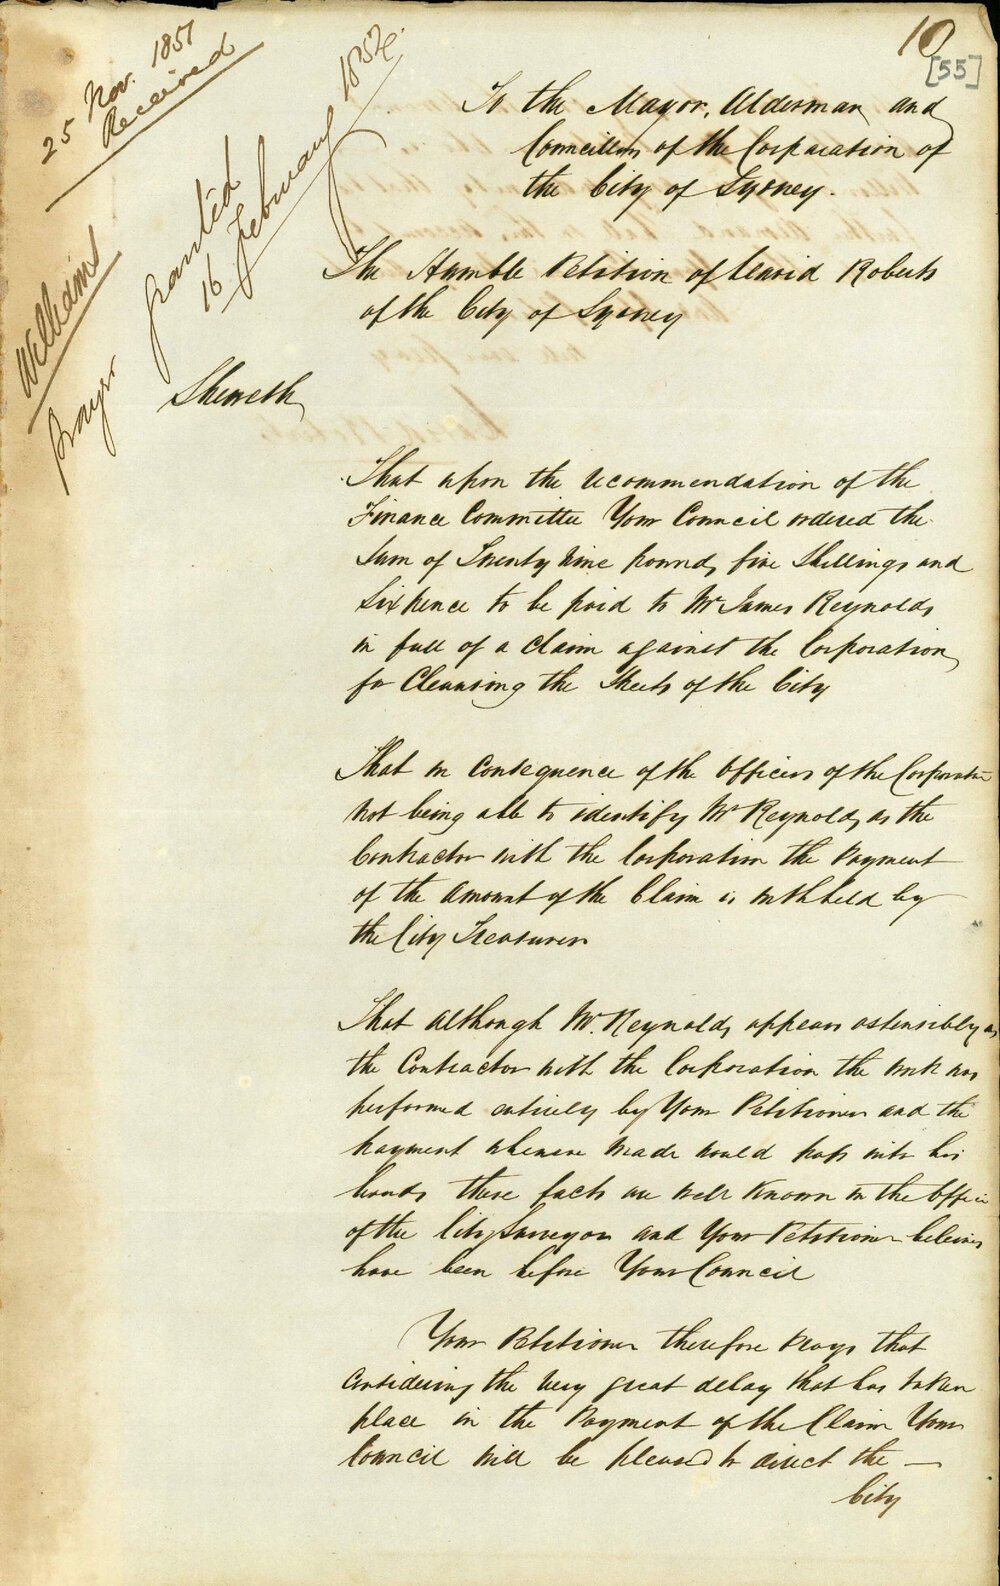 10
[55]
25 Nov. 1851
Received
Williams
prays
granted
16 February 1852
To the Mayor, Alderman and
Councillors of the Corporation of
the City of Sydney.
The Humble Petition of David Roberts
of the City of Sydney
Sheweth,
That upon the recommendation of the
Finance Committee Your Council ordered the
Sum of Twenty Nine pounds five Shillings and
Sixpence to be paid to Mr James Reynolds
in full of a Claim against the Corporation,
for Cleansing the Streets of the City
That in Consequence of the Officers of the Corporation
not being able to identify Mr Reynolds as the
Contractor with the Corporation the Payment
of the Amount of the Claim is withheld by
the City Treasurer
That although Mr. Reynolds appears ostensibly as
the Contractor with the Corporation the work was
performed entirely by Your Petitioner and the
payment whenever made would pass into his
hands these facts are well known in the Office
of the City Surveyor and Your Petitioner believes
have been before Your Council
Your Petitioner therefore Prays that
Considering the very great delay that has taken
place in the Payment of the Claim Your
Council will be pleased to direct the —
City